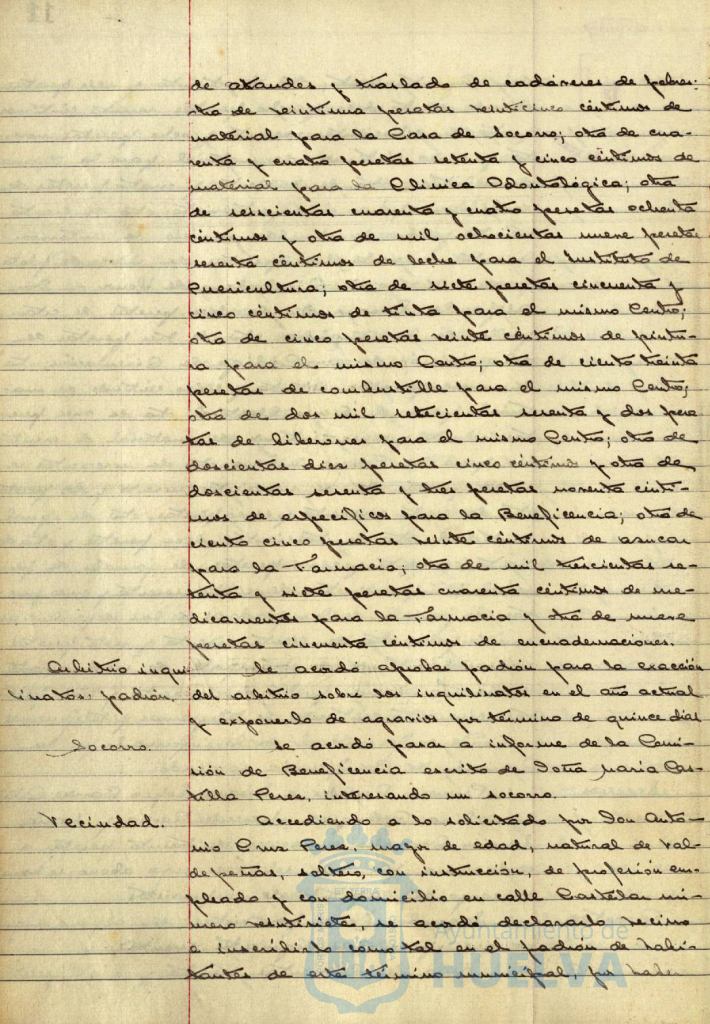 de ataudes y traslado de cadáveres de pobres;
otra de veintiuna pesetas veinticinco céntimos de
material para la Casa de Socorro; otra de cua-
renta y cuatro pesetas setenta y cinco céntimos de
material para la Clinica Odontológica; otra
de seiscientas cuarenta y cuatro pesetas ochenta
céntimos y otra de mil ochocientas nueve pesetas
sesenta céntimos de leche para el Instituto de
Puericultura; otra de siete pesetas cincuenta y
cinco céntimos de tinta para el mismo Centro;
otra de cinco pesetas veinte céntimos de pintu-
ra para el mismo Centro; otra de ciento treinta
pesetas de combustible para el mismo Centro;
otra de dos mil setecientas sesenta y dos pese
tas de biberones para el mismo Centro; otra de
doscientas diez pesetas cinco céntimos y otra de
doscientas sesenta y tres pesetas noventa cénti-
mos de especificos para la Beneficencia; otra de
ciento cinco pesetas veinte céntimos de azucar
para la Farmacia; otra de mil trescientas se-
tenta y siete pesetas cuarenta céntimos de me-
dicamentos para la Farmacia y otra de nueve
pesetas cincuenta céntimos de encuadernaciones.
Arbitrio inqui-
linatos: padrón.
Se acordó aprobar padrón para la exacción
del arbitrio sobre los inquilinatos en el año actual
y exponerlo de agravios por término de quince dias
Socorro.
Se acordó pasar a informe de la Comi-
sión de Beneficencia escrito de Doña María Cas-
tilla Perez, interesando un socorro.
Vecindad.
Accediendo a lo solicitado por Don Anto-
nio Cruz Perez, mayor de edad, natural de Val-
depeñas, soltero, con instrucción, de profesión em-
pleado y con domicilio en calle Castelar nú-
mero veintisiete, se acordó declararlo vecino
e inscribirlo como tal en el padrón de habi-
tantes de este término municipal, por haber
Ayuntamiento de
HUELVA